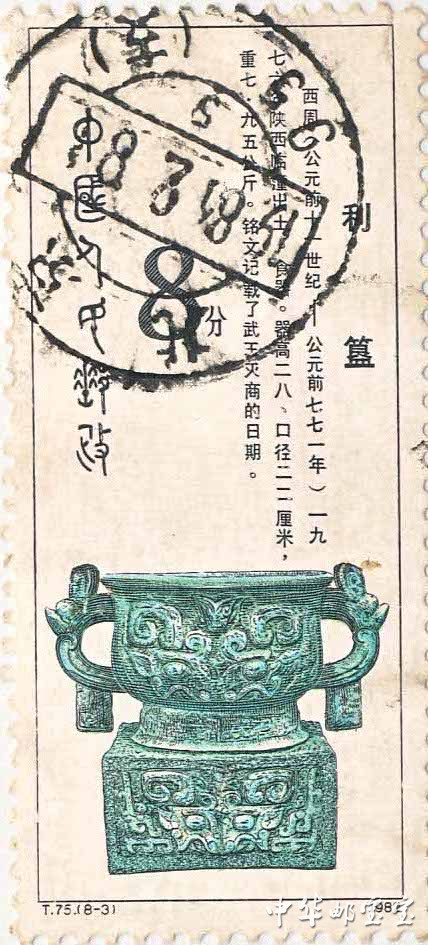 利簋
西周（公元前十一世纪——公元前七七一年）一九
七六年陕西临潼出土。食器。器高二八、口径二二厘米，
重七·九五公斤。铭文记载了武王灭商的日期。
8分
中国人民邮政
T.75.(8-3)
中华邮宝宝